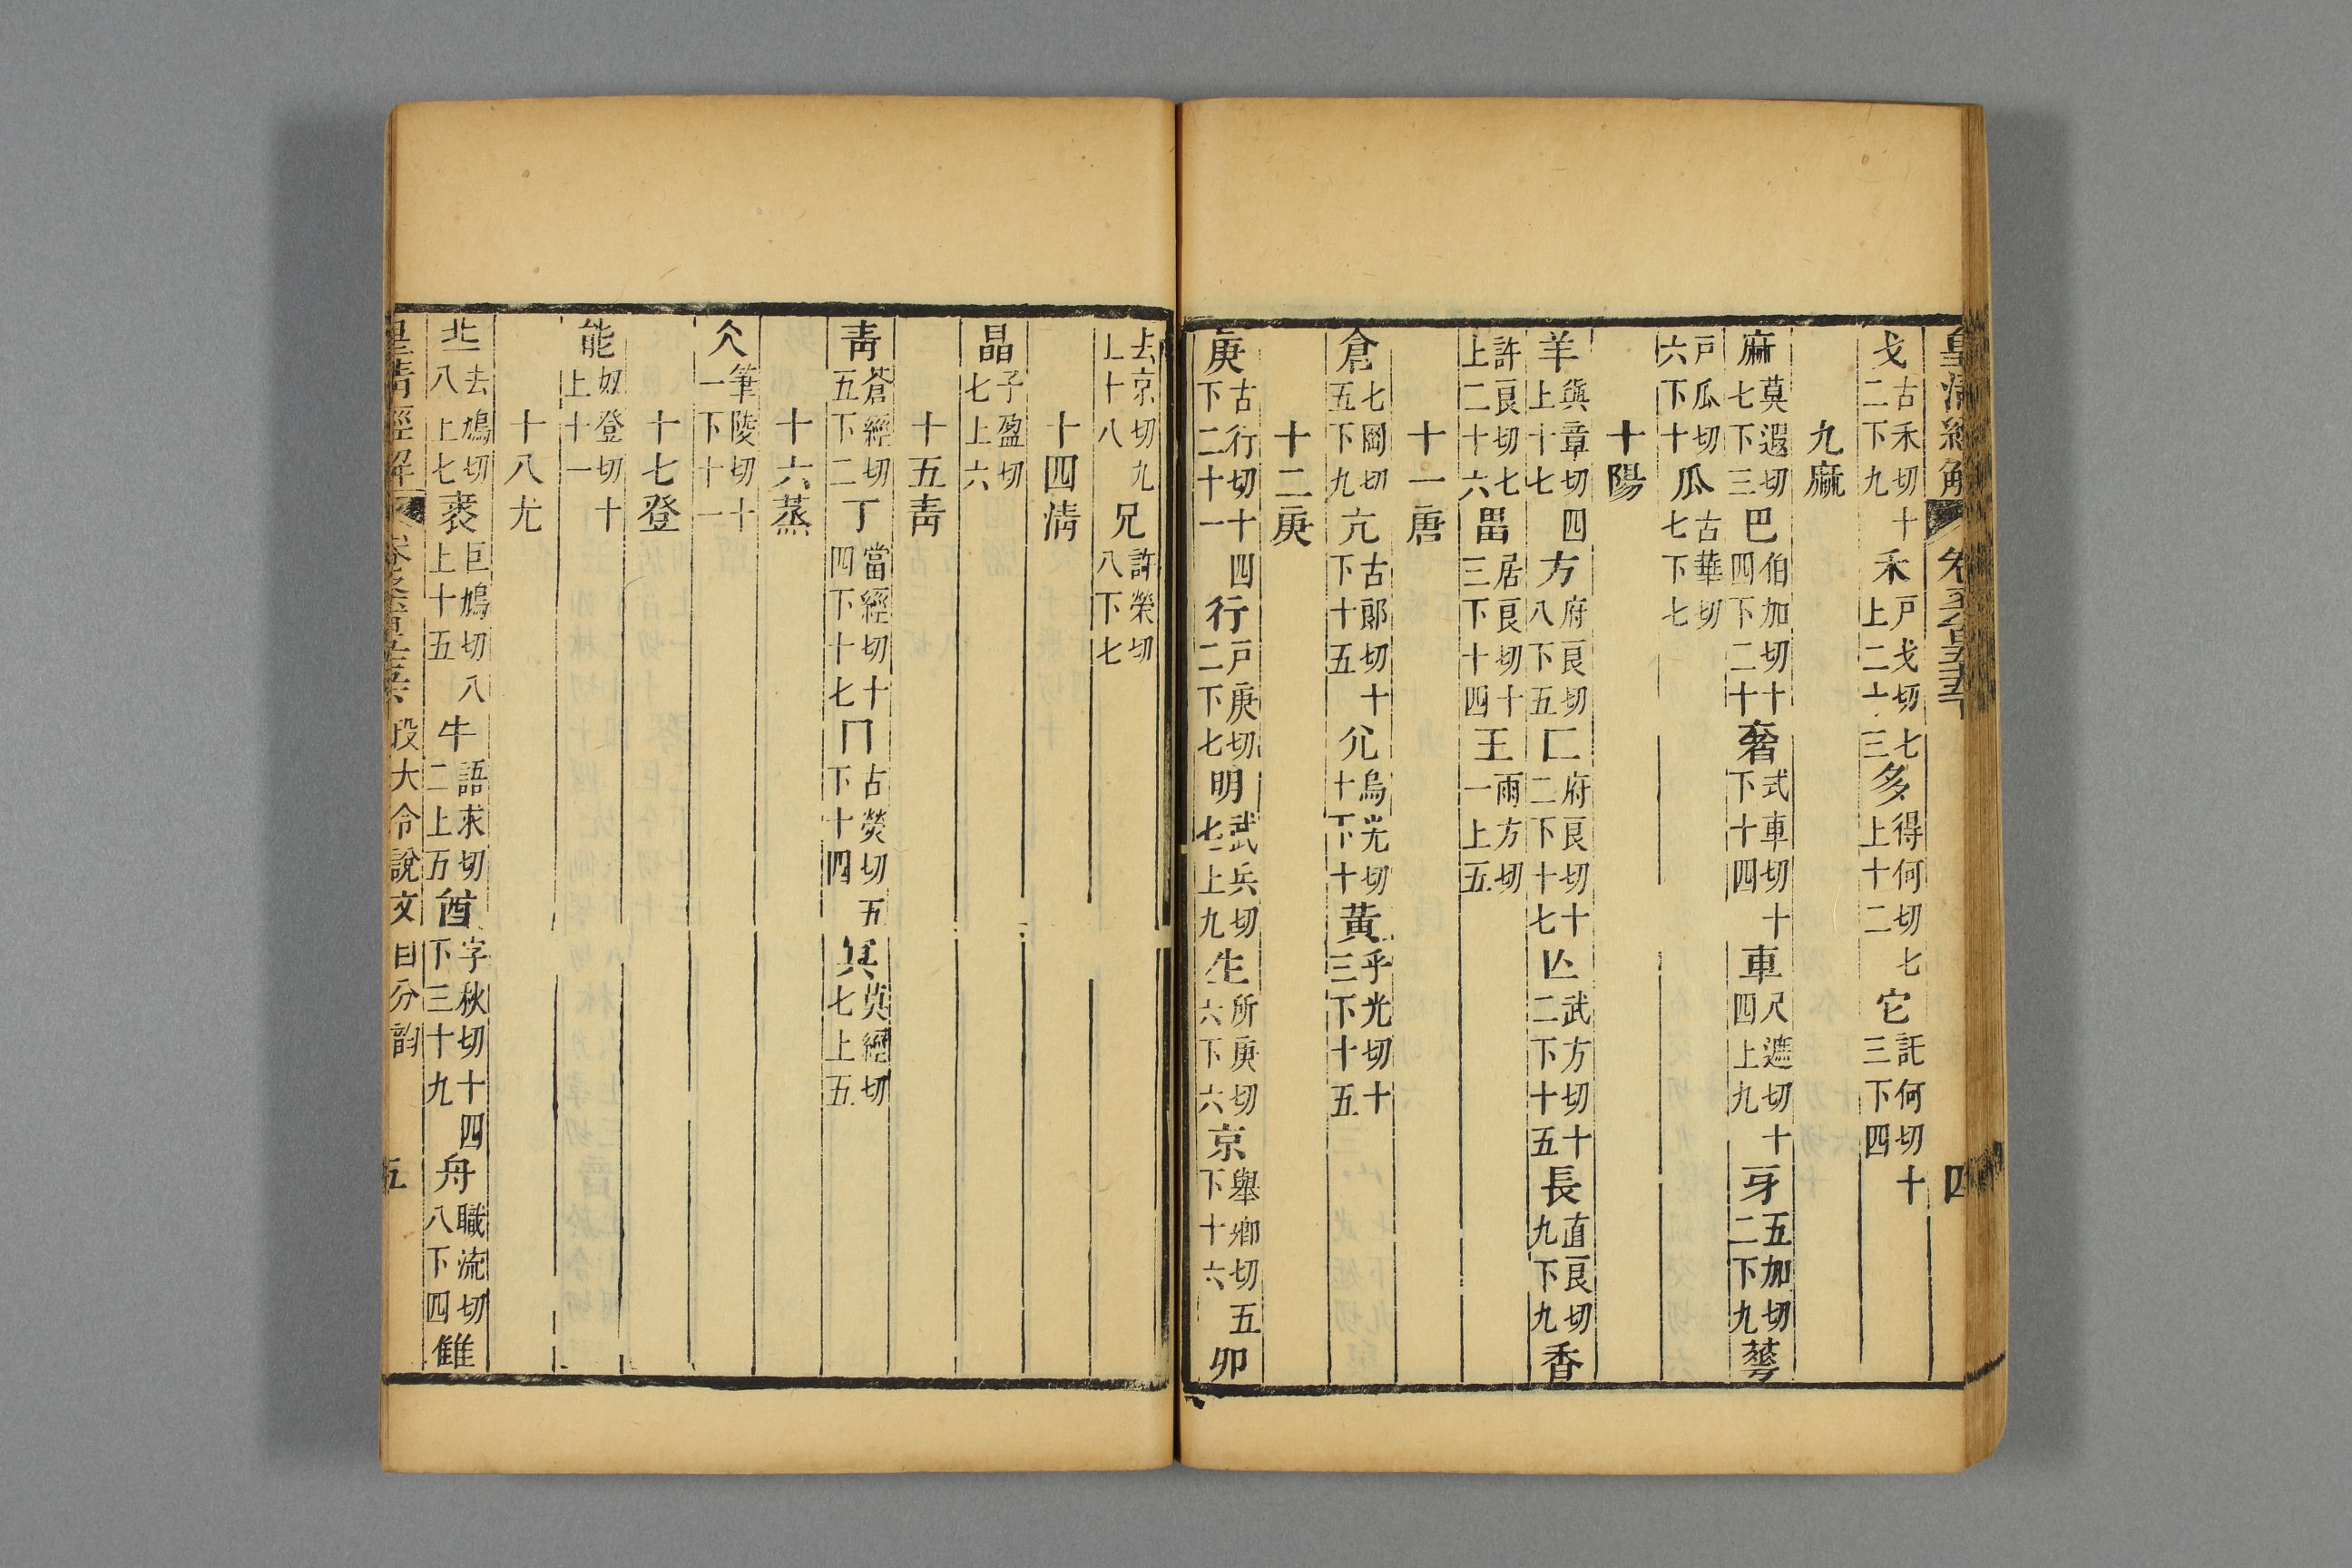 皇清經解
四
戈古禾切十二下九禾戸戈切七上二十三多得何切七上十二它託何切十三下四
九麻
麻莫遐切七下三巴伯加切十四下二十奢式車切十下十四車尺遮切十四上九牙五加切二下九蕚
戸瓜切六下十瓜古華切七下七
十陽
羊與章切四上十七方府良切八下五匚府良切十二下十七亾武方切十二下十五長直良切九下九香
許良切七上二十六畕居良切十三下十四王雨方切一上五
十一唐
倉七岡切五下九亢古郎切十下十五尣烏光切十下十黃乎光切十三下十五
十二庚
庚古行切十四下二十一行戸庚切二下七明武兵切七上九生所庚切六下六京舉鄉切五下十六卯
去京切九上十八兄許榮切八下七
十四淸
晶子盈切七上六
十五靑
靑蒼經切五下二丁當經切十四下十七冂古熒切五下十四冥莫經切七上五
十六蒸
仌筆陵切十一下十一
十七登
能奴登切十上十一
十八尤
丠去鳩切八上七裘巨鳩切八上十五牛語求切二上五酋字秋切十四下三十九舟職流切八下四雔
皇清經解 段大令說文目分韵 五